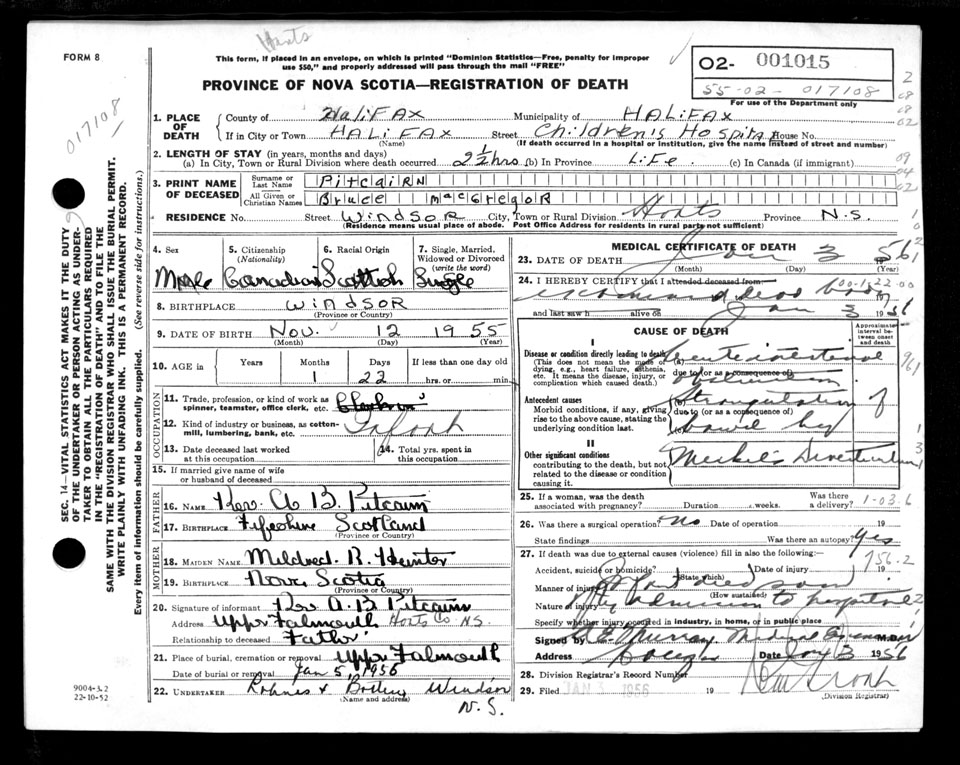 Hants
FORM 8
This form, if placed in an envelope, on which is printed "Dominion Statistics—Free, penalty for improper
use $50," and properly addressed will pass through the mail "FREE"
PROVINCE OF NOVA SCOTIA—REGISTRATION OF DEATH
O2- 001015
55-02- 017108
For use of the Department only
017108
SEC. 14—VITAL STATISTICS ACT MAKES IT THE DUTY
OF THE UNDERTAKER OR PERSON ACTING AS UNDER-
TAKER TO OBTAIN ALL THE PARTICULARS REQUIRED
IN THE "REGISTRATION OF DEATH" AND TO FILE THE
SAME WITH THE DIVISION REGISTRAR WHO SHALL ISSUE THE BURIAL PERMIT.
WRITE PLAINLY WITH UNFADING INK. THIS IS A PERMANENT RECORD.
Every item of information should be carefully supplied. (See reverse side for instructions.)
1. PLACE OF DEATH
County of HaliFAX Municipality of HALiFAX
If in City or Town HALiFAX Street Children's Hospital House No.
(Name) (If death occurred in a hospital or institution, give the name instead of street and number)
2. LENGTH OF STAY (in years, months and days)
(a) In City, Town or Rural Division where death occurred 2½ hrs (b) In Province LiFe (c) In Canada (if immigrant)
3. PRINT NAME OF DECEASED
Surname or Last Name PitcaiRN
All Given or Christian Names Bruce macGregoR
RESIDENCE No. Street WindSOR City, Town or Rural Division Hants Province N.S.
(Residence means usual place of abode. Post Office Address for residents in rural parts not sufficient)
4. Sex 5. Citizenship (Nationality) 6. Racial Origin 7. Single, Married, Widowed or Divorced (write the word)
Male Canadian Scottish Single
8. BIRTHPLACE WindSOR
(Province or Country)
9. DATE OF BIRTH Nov. 12 1955
(Month) (Day) (Year)
10. AGE in Years Months Days If less than one day old
1 22 hrs. or min.
OCCUPATION
11. Trade, profession, or kind of work as
spinner, teamster, office clerk, etc.
12. Kind of industry or business, as cotton-
mill, lumbering, bank, etc. Infant
13. Date deceased last worked
at this occupation
14. Total yrs. spent in
this occupation
15. If married give name of wife
or husband of deceased
FATHER
16. NAME Rev. A B. Pitcairn
17. BIRTHPLACE Fifeshire Scotland
(Province or Country)
MOTHER
18. MAIDEN NAME Mildred. R. Hunter
19. BIRTHPLACE Nova Scotia
(Province or Country)
20. Signature of informant Rev A. B Pitcairn
Address Upper Falmouth Hants Co N.S.
Relationship to deceased Father
21. Place of burial, cremation or removal Upper Falmouth
Date of burial or removal Jan 5, 1956
22. UNDERTAKER Windsor
(Name and address) N.S.
9004-3.2
22-10-52
MEDICAL CERTIFICATE OF DEATH
23. DATE OF DEATH Jan 3 1956
(Month) (Day) (Year)
24. I HEREBY CERTIFY that I attended deceased from
examined dead body
and last saw h alive on Jan 3 1956
CAUSE OF DEATH
Approximate interval between onset and death
I
Disease or condition directly leading to death
(This does not mean the mode of
dying, e.g., heart failure, asthenia,
etc. It means the disease, injury, or
complication which caused death.)
Acute intestinal
due to (or as a consequence of)
obstruction
Antecedent causes
Morbid conditions, if any, giving
rise to the above cause, stating the
underlying condition last.
Strangulation of
due to (or as a consequence of)
bowel by
II
Other significant conditions
contributing to the death, but not
related to the disease or condition
causing it.
Meckel's Diverticulum
25. If a woman, was the death
associated with pregnancy? Duration weeks. Was there a delivery?
1-03.6
26. Was there a surgical operation? No Date of operation 19
State findings Was there an autopsy? Yes
27. If death was due to external causes (violence) fill in also the following:
Accident, suicide or homicide? (State which) Date of injury 19
756.2
Manner of injury Infant died soon
(How sustained)
Nature of injury after admission to hospital
Specify whether injury occurred in industry, in home, or in public place
Signed by Murray Medical Examiner M.D.
Address Date Jan 3 1956
28. Division Registrar's Record Number
29. Filed JAN 3 1956 19
(Division Registrar)